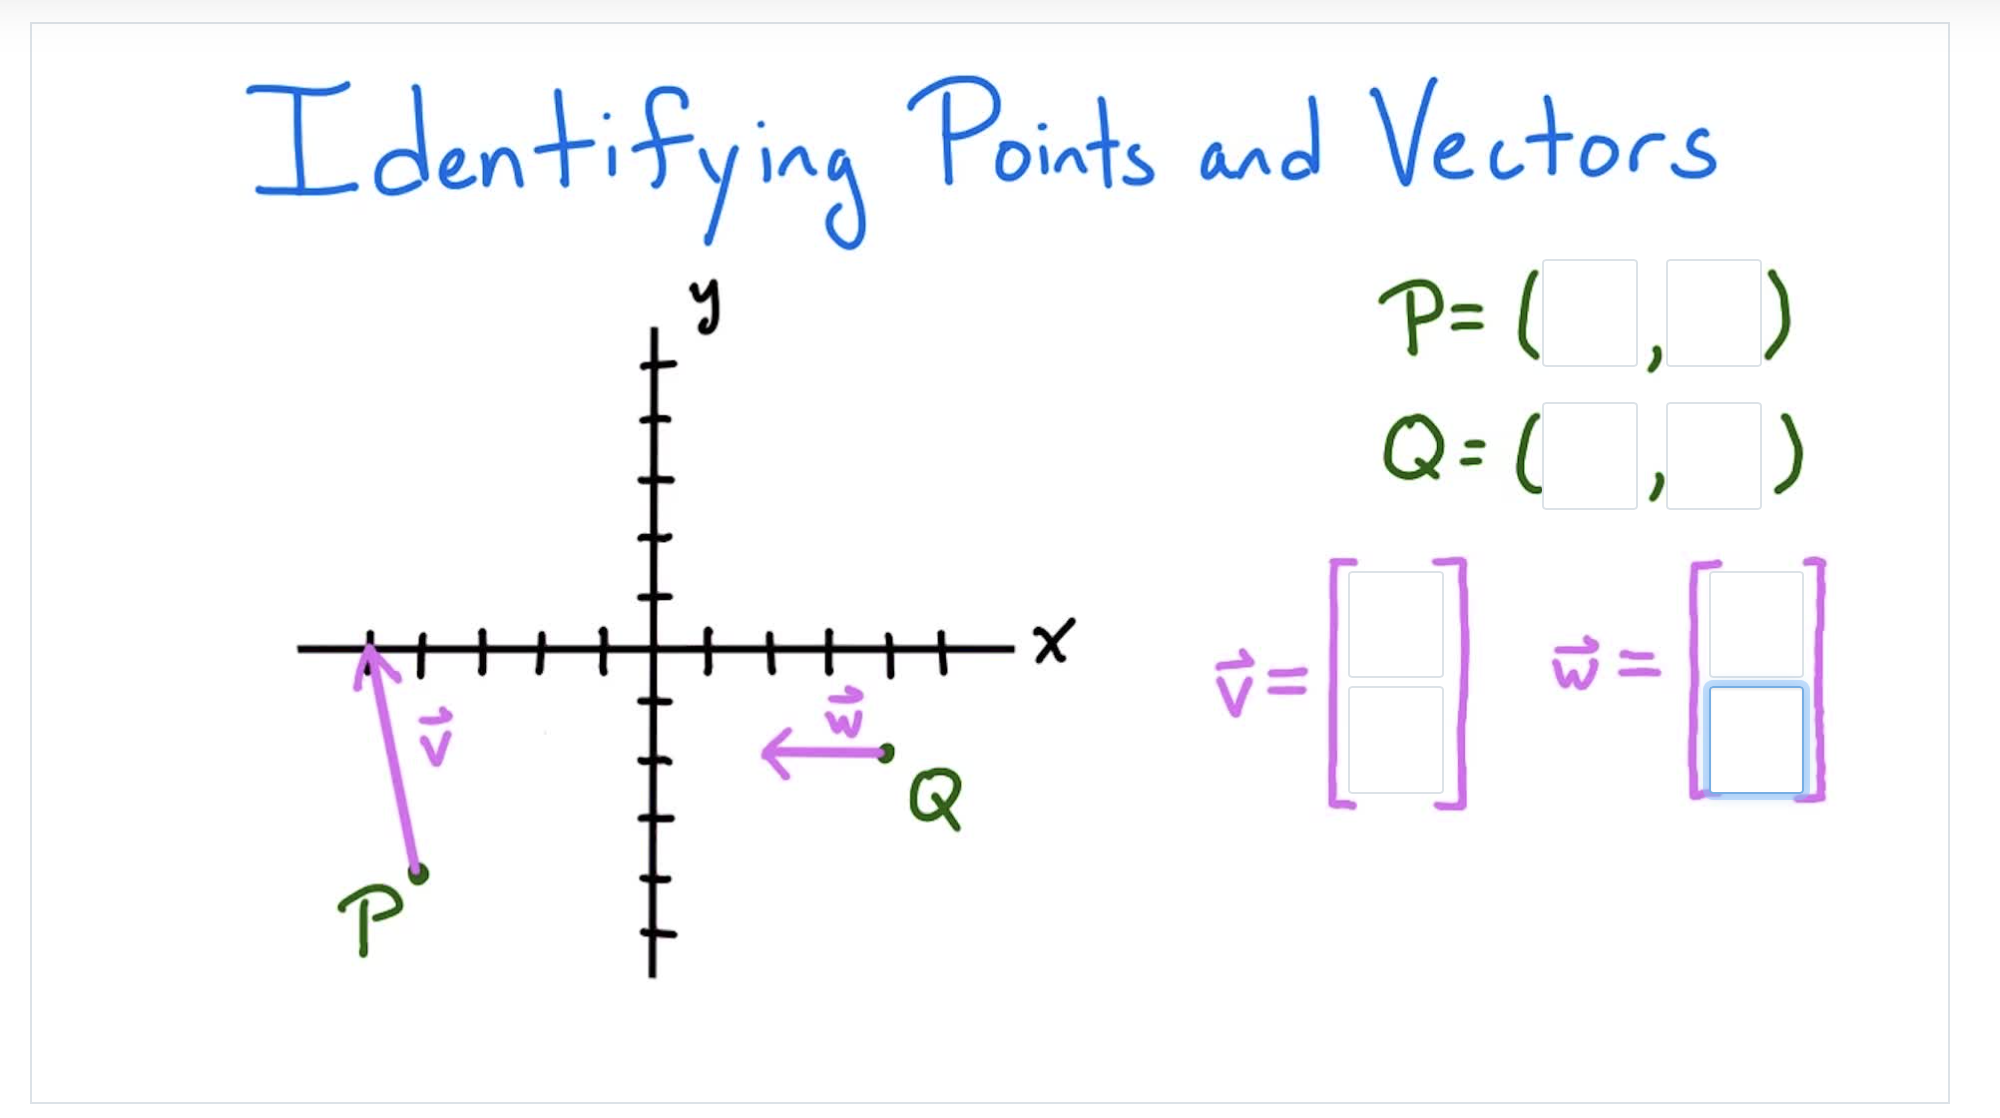 Identifying Points and Vectors
y
P = ( , )
Q = ( , )
x
v⃗ = [ ]
w⃗ = [ ]
v⃗
w⃗
Q
P